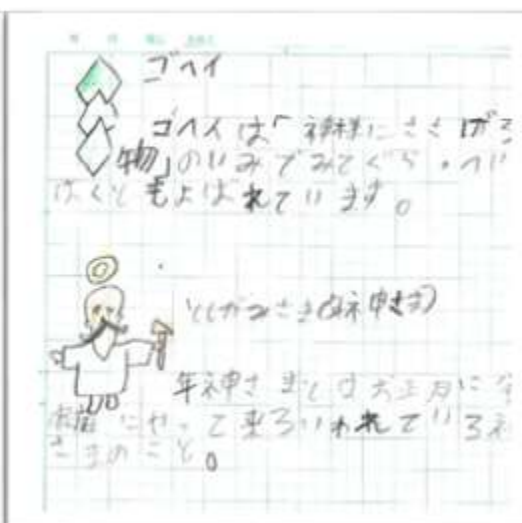 ゴヘイ
ゴヘイは「神様にささげる
物」のいみでみてぐら・へい
はくともよばれています。
としがみさま(年神さま)
年神さまとはお正月に
にやって来るいわれている神
さまのこと。